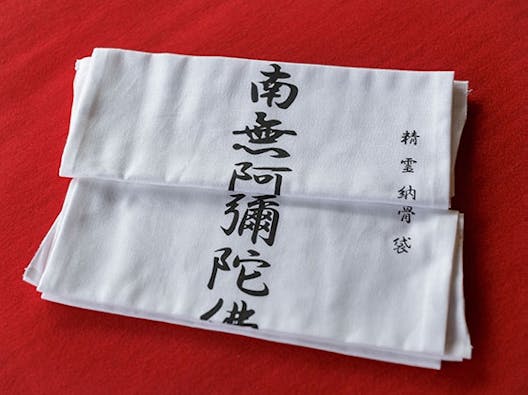 南無阿彌陀佛
精霊納骨袋